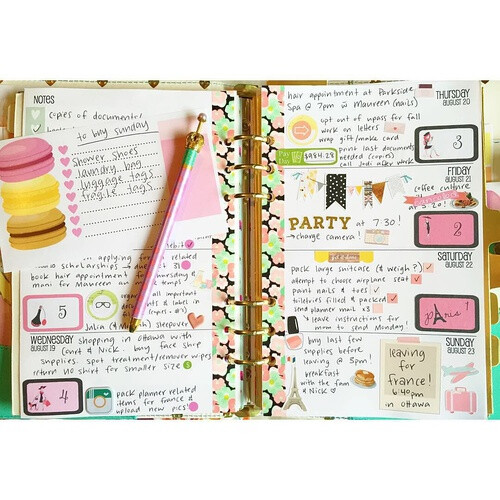 NOTES
copies of documents
to buy sunday
shower shoes
laundry bag
luggage tags
fragile tags
applying for related
scholarships
book hair appointment &
mani for Maureen
all important
& label in
Julia (& Matth) sleepover
5
WEDNESDAY
AUGUST 19
shopping in ottawa with
court & Nick. buy face shop
supplies. spot treatment/remover wipes
return NC shirt for smaller size
4
pack planner related
items for france &
upload new pics!
hair appointment at Parkside
Spa @ 7pm w Maureen (nails)
THURSDAY
AUGUST 20
opt out of upass for fall
work on letters
wrap gift/make card
Pay Day
$984.28
print last documents
needed (copies)
call Jodi after work
3
FRIDAY
AUGUST 21
coffee culture
@ 3:20!
PARTY at 7:30!
→ charge camera!
2
SATURDAY
AUGUST 22
pack large suitcase (& weigh?)
attempt to choose airplane seat
paint nails & toes!
toiletries filled & packed
send planner mail x3
↳ leave instructions for
mom to send Monday!
PARIS
1
SUNDAY
AUGUST 23
buy last few
supplies before
leaving @ 3pm!
breakfast
with the fam
& Nick
leaving
for
france!
6:40pm
in Ottawa